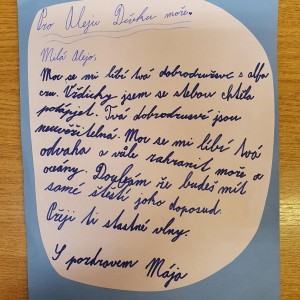 Pro Aleju Dívku moře.
Milá Alejo,
Moc se mi líbí tvá dobrodružsví s alfa
cru. Vždicky jsem se stebou chtěla
potápjet. Tvá dobrodrusví jsou
neuvěřitelná. Moc se mi líbí tvá
odvaha a vůle zahranit moře a
oceány. Doufám že budeš mít
samé štěstí jako doposud.
Přiji ti stastné vlny.
S pozdravem Mája